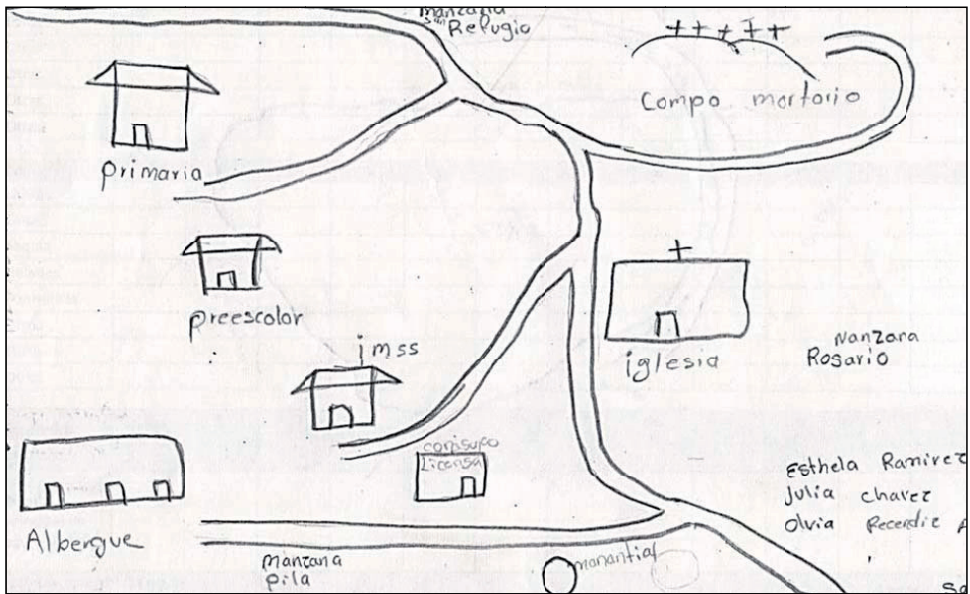 manzana
san
Refugio
Campo mortorio
primaria
preescolor
imss
iglesia
Nanzara
Rosario
conisupo
Liconsa
Albergue
Esthela Ramirez
Julia chavez
Olvia
manzana
pila
manantial